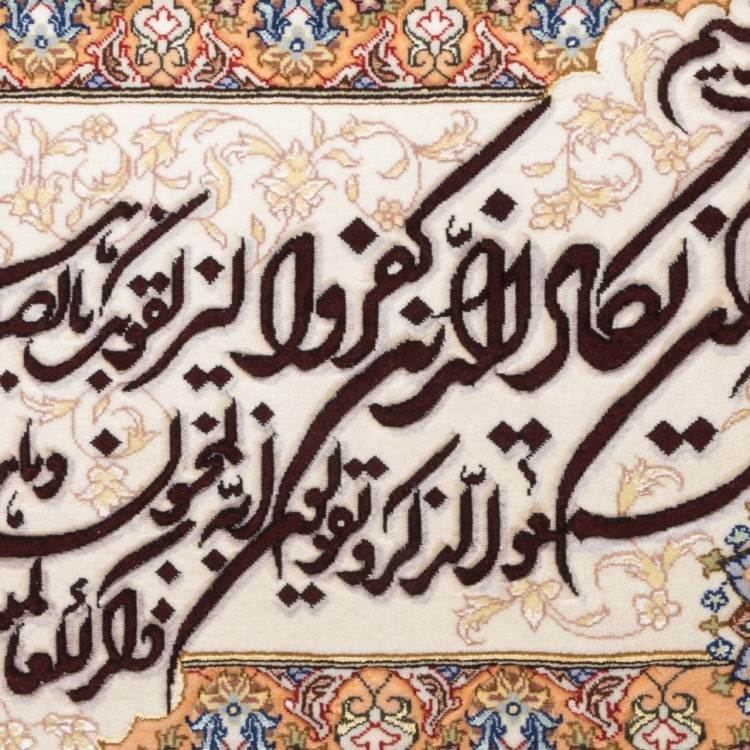 يكاد الذين كفروا ليزلقونك
الذكر ويقولون إنه لمجنون وما
ذكر للعالمين